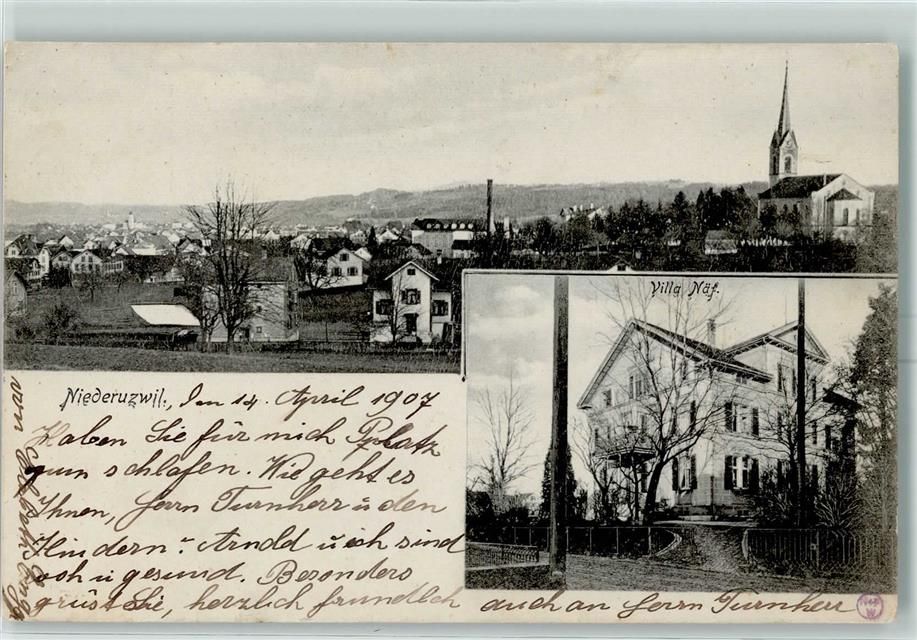 Villa Näf.
Niederuzwil, Den 14. April 1907
Haben Sie für mich Pplatz
zum schlafen. Wie geht es
Ihnen, Herrn Turnherr u den
Kindern. Arnold u ich sind
woh u gesund. Besonders
grüst Sie, herzlich freundlch auch an Herrn Turnherr
von